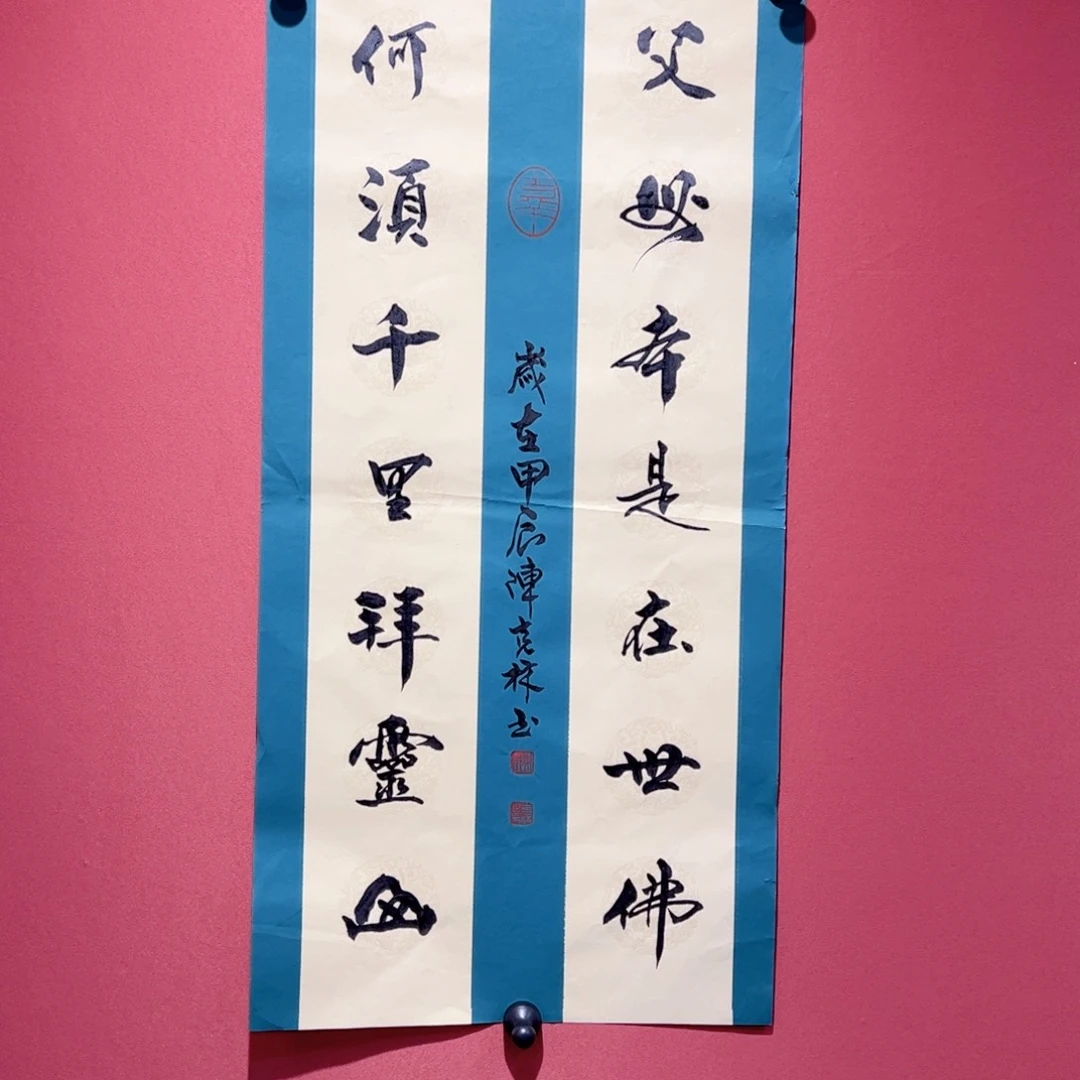 父母本是在世佛
何須千里拜靈山
歲在甲辰陳克林书